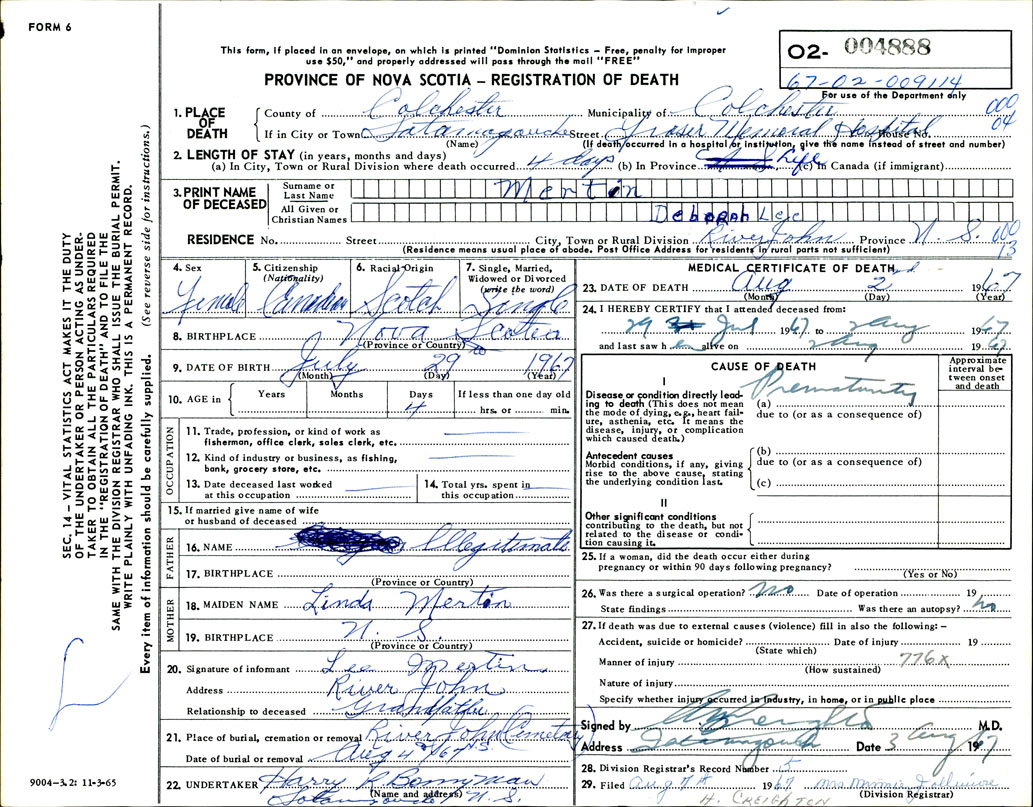 FORM 6
This form, if placed in an envelope, on which is printed "Dominion Statistics – Free, penalty for improper
use $50," and properly addressed will pass through the mail "FREE"
PROVINCE OF NOVA SCOTIA – REGISTRATION OF DEATH
O2- 004888
67-02-009114
For use of the Department only
SEC. 14 – VITAL STATISTICS ACT MAKES IT THE DUTY
OF THE UNDERTAKER OR PERSON ACTING AS UNDER-
TAKER TO OBTAIN ALL THE PARTICULARS REQUIRED
IN THE "REGISTRATION OF DEATH" AND TO FILE THE
SAME WITH THE DIVISION REGISTRAR WHO SHALL ISSUE THE BURIAL PERMIT.
WRITE PLAINLY WITH UNFADING INK. THIS IS A PERMANENT RECORD.
Every item of information should be carefully supplied. (See reverse side for instructions.)
1. PLACE OF DEATH
County of Colchester Municipality of Colchester 000
If in City or Town Tatamagouche Street Fraser Memorial Hospital House No. 04
(Name) (If death occurred in a hospital or institution, give the name instead of street and number)
2. LENGTH OF STAY (in years, months and days)
(a) In City, Town or Rural Division where death occurred 4 days (b) In Province Life (c) In Canada (if immigrant)
3. PRINT NAME OF DECEASED
Surname or Last Name Mertin
All Given or Christian Names Deborah Lee
RESIDENCE No. Street City, Town or Rural Division River John Province N. S. 000
(Residence means usual place of abode. Post Office Address for residents in rural parts not sufficient) 13
4. Sex Female
5. Citizenship (Nationality) Canadian
6. Racial Origin Scotch
7. Single, Married, Widowed or Divorced (write the word) Single
8. BIRTHPLACE Nova Scotia
(Province or Country)
9. DATE OF BIRTH July 29 1967
(Month) (Day) (Year)
10. AGE in Years Months Days 4 If less than one day old hrs. or min.
OCCUPATION
11. Trade, profession, or kind of work as
fisherman, office clerk, sales clerk, etc.
12. Kind of industry or business, as fishing,
bank, grocery store, etc.
13. Date deceased last worked
at this occupation
14. Total yrs. spent in
this occupation
15. If married give name of wife
or husband of deceased
FATHER
16. NAME Illegitimate
17. BIRTHPLACE
(Province or Country)
MOTHER
18. MAIDEN NAME Linda Mertin
19. BIRTHPLACE N. S.
(Province or Country)
20. Signature of informant Lee Mertin
Address River John
Relationship to deceased Grandfather
21. Place of burial, cremation or removal River John Cemetary N S
Date of burial or removal Aug 4 67
22. UNDERTAKER Harry R Bonnyman
(Name and address) Tatamagouche N. S.
9004–3.2: 11-3-65
MEDICAL CERTIFICATE OF DEATH
23. DATE OF DEATH Aug 2nd 1967
(Month) (Day) (Year)
24. I HEREBY CERTIFY that I attended deceased from:
29 Jul 1967 to 2 Aug 1967
and last saw h alive on 2 Aug 1967
CAUSE OF DEATH
Approximate interval between onset and death
I
Disease or condition directly lead-
ing to death (This does not mean
the mode of dying, e.g., heart fail-
ure, asthenia, etc. It means the
disease, injury, or complication
which caused death.)
(a) Prematurity
due to (or as a consequence of)
Antecedent causes
Morbid conditions, if any, giving
rise to the above cause, stating
the underlying condition last.
(b)
due to (or as a consequence of)
(c)
II
Other significant conditions
contributing to the death, but not
related to the disease or condi-
tion causing it.
25. If a woman, did the death occur either during
pregnancy or within 90 days following pregnancy?
(Yes or No)
26. Was there a surgical operation? No Date of operation 19
State findings Was there an autopsy? No
27. If death was due to external causes (violence) fill in also the following: –
Accident, suicide or homicide? Date of injury 19
(State which)
Manner of injury 776X
(How sustained)
Nature of injury
Specify whether injury occurred in industry, in home, or in public place
Signed by M.D.
Address Tatamagouche Date 3 Aug 1967
28. Division Registrar's Record Number 15
29. Filed Aug 7th 1967
(Division Registrar)
H. CREIGHTON